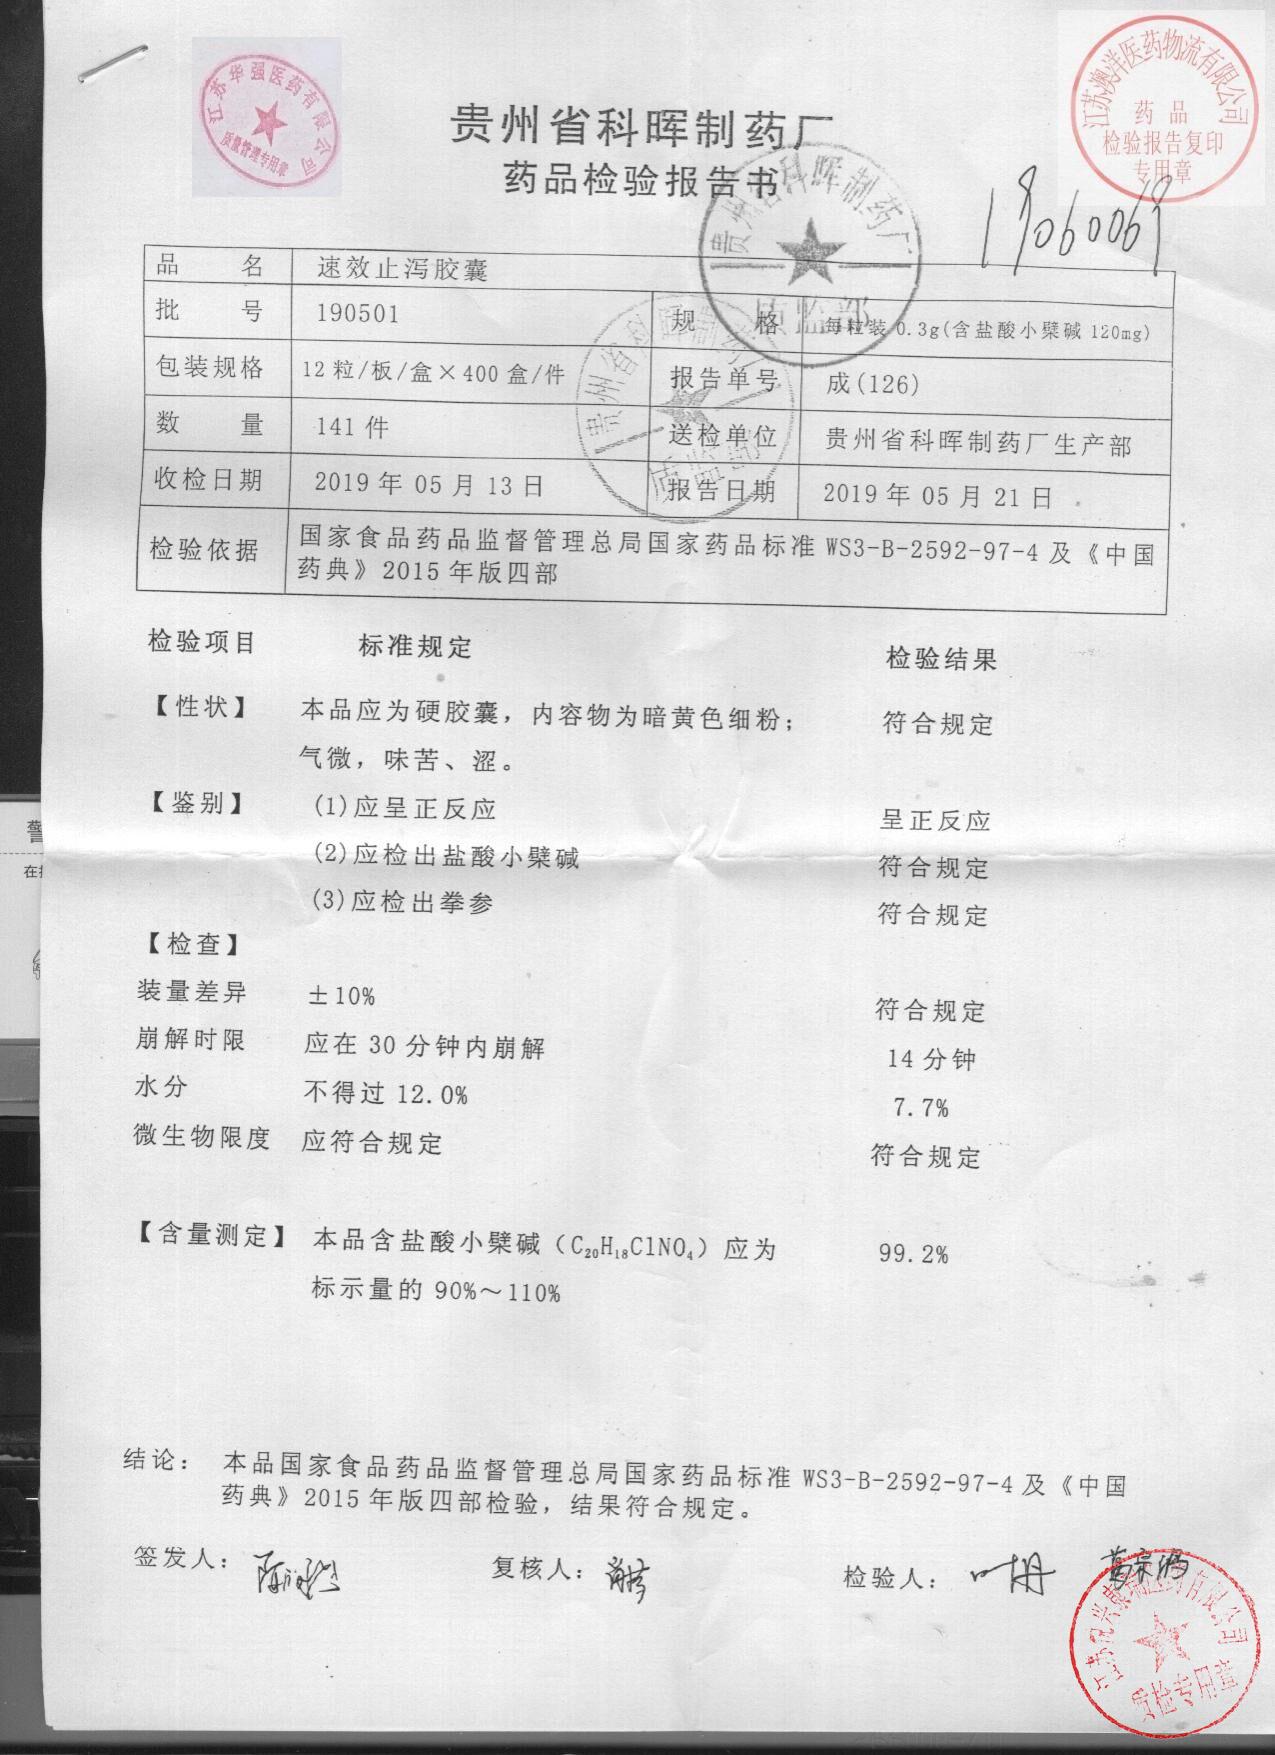 江苏华强医药有限公司
质量管理专用章
江苏澳洋医药物流有限公司
药品
检验报告复印
专用章
贵州省科晖制药厂
药品检验报告书
贵州省科晖制药厂
质监部
19060069
品 名 速效止泻胶囊
批 号 190501 规 格 每粒装 0.3g(含盐酸小檗碱 120mg)
包装规格 12粒/板/盒×400盒/件 报告单号 成(126)
数 量 141件 送检单位 贵州省科晖制药厂生产部
收检日期 2019年05月13日 报告日期 2019年05月21日
贵州省科晖制药厂
质监部
检验依据 国家食品药品监督管理总局国家药品标准 WS3-B-2592-97-4 及《中国
药典》2015年版四部
检验项目 标准规定 检验结果
【性状】 本品应为硬胶囊，内容物为暗黄色细粉； 符合规定
气微，味苦、涩。
【鉴别】 (1)应呈正反应 呈正反应
(2)应检出盐酸小檗碱 符合规定
(3)应检出拳参 符合规定
【检查】
装量差异 ±10% 符合规定
崩解时限 应在30分钟内崩解 14分钟
水分 不得过12.0% 7.7%
微生物限度 应符合规定 符合规定
【含量测定】 本品含盐酸小檗碱（C₂₀H₁₈ClNO₄）应为 99.2%
标示量的 90%～110%
结论： 本品国家食品药品监督管理总局国家药品标准 WS3-B-2592-97-4 及《中国
药典》2015年版四部检验，结果符合规定。
签发人： 复核人： 检验人： 叶丹
质检专用章
警
在